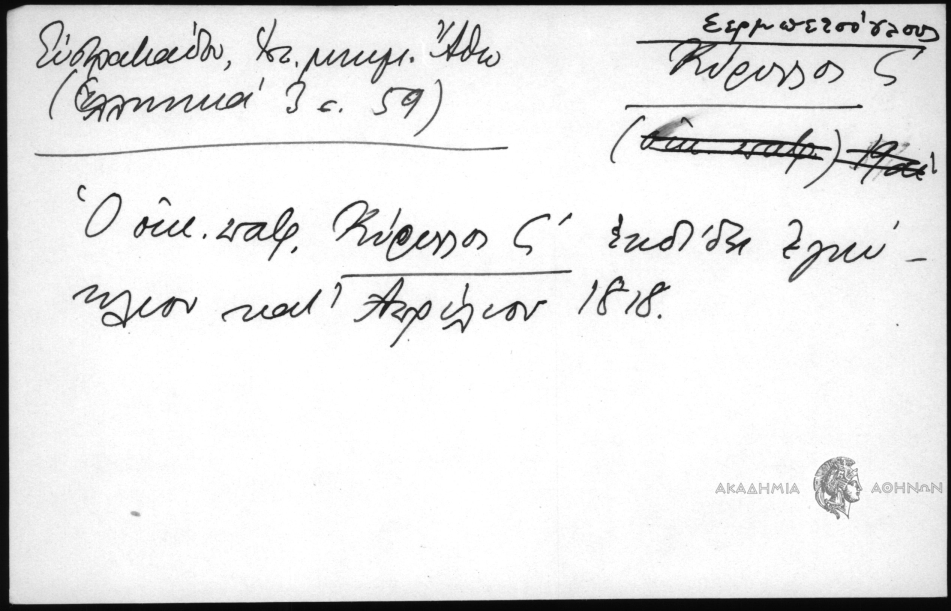 Εὐστρατιάδου, Ἱστ. μνημ. Ἄθω
(Ἑλληνικά 3 σ. 59)
Σερμπετσόγλους
Κύριλλος Ϛ
(οἰκ. πατρ.)
Ὁ οἰκ. πατρ. Κύριλλος Ϛ΄ ἐκδίδει ἐγκύ-
κλιον κατ' Ἀπρίλιον 1818.
ΑΚΑΔΗΜΙΑ ΑΘΗΝΩΝ